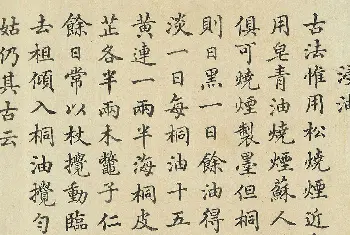 浸油
古法惟用松燒煙近
用皂青油燒煙蘇人
俱可燒煙製墨但桐
則日黑一日餘油得
淡一日每桐油十五
黃連一兩半海桐皮
芷各半兩木鼈子仁
餘日常以杖攪動臨
去柤傾入桐油攪勻
姑仍其古云